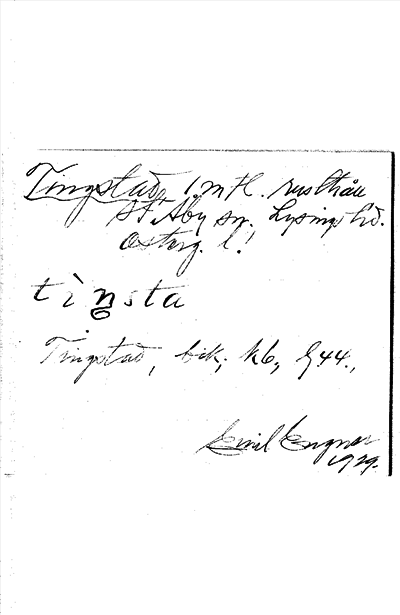 Tingstad, 1 mtl. rusthåll
St. Åby sn. Lysings hd.
Österg. l.
tìŋsta
Tingstad, bik; kb, G44.,
Emil Engner
1929.